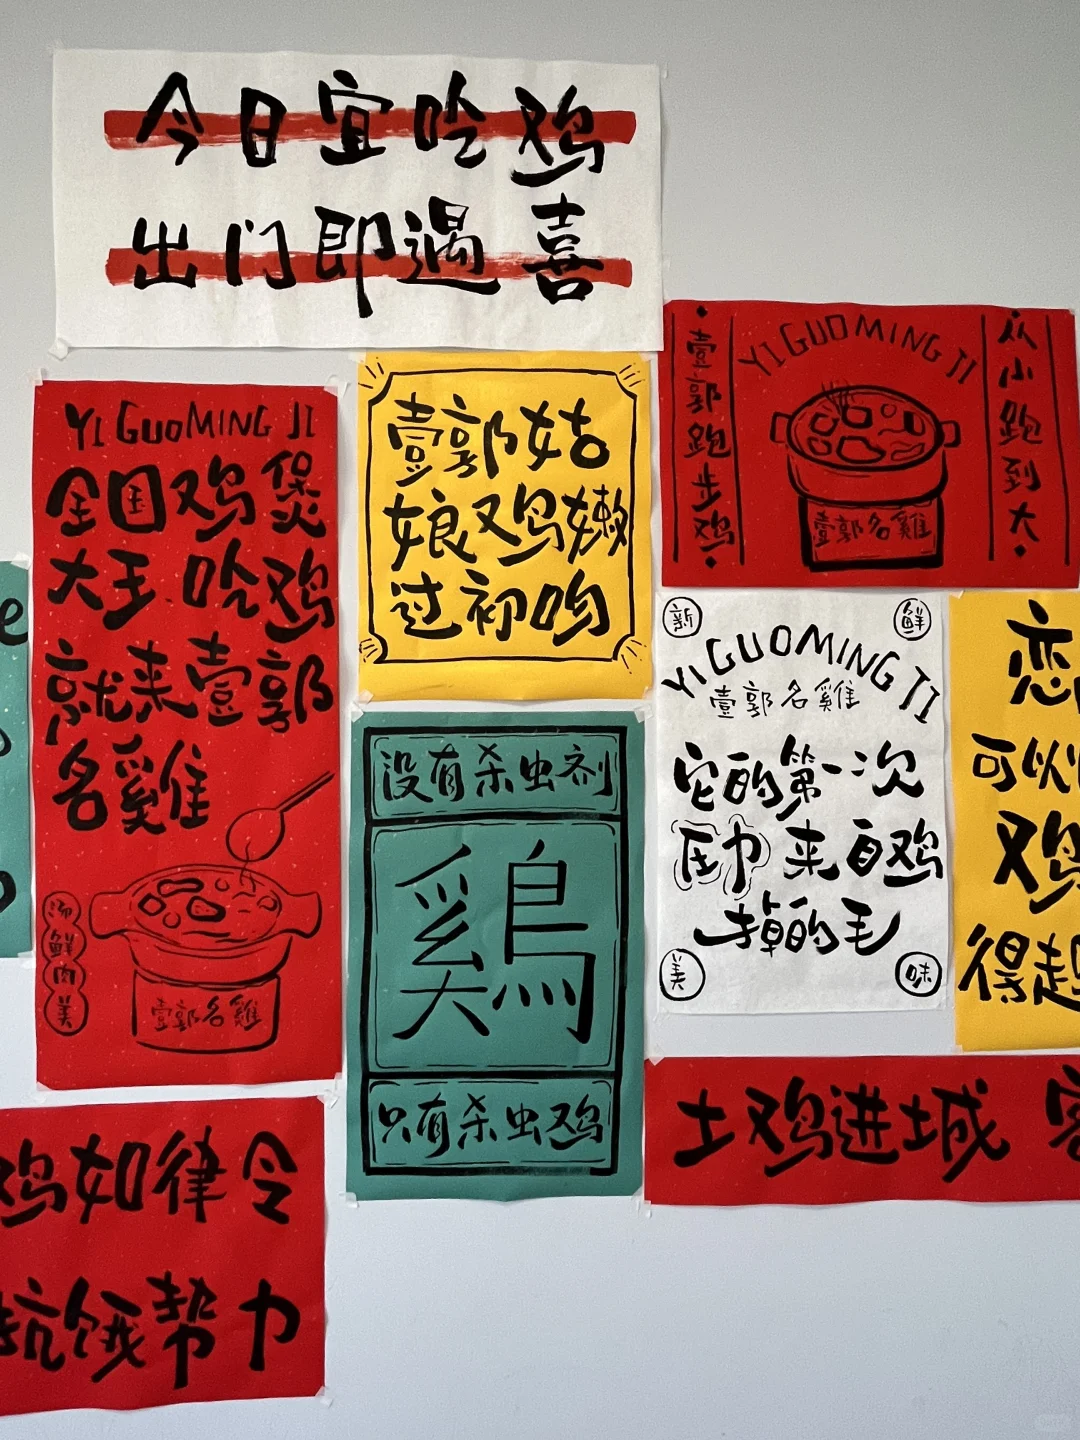 今日宜吃鸡
出门即遇喜
YI GUOMING JI
全国鸡煲
大王 吃鸡
就来壹郭
名雞
汤鲜肉美
壹郭名雞
壹郭姑
娘鸡嫩
过初吻
壹郭跑步鸡
YI GUOMING JI
壹郭名雞
从小跑到大
没有杀虫剂
鷄
只有杀虫鸡
新
鲜
YI GUOMING JI
壹郭名雞
它的第一次
来自鸡
掉的毛
美
味
恋
可以
鸡
得起
土鸡进城
鸡如律令
抗饿帮力
e